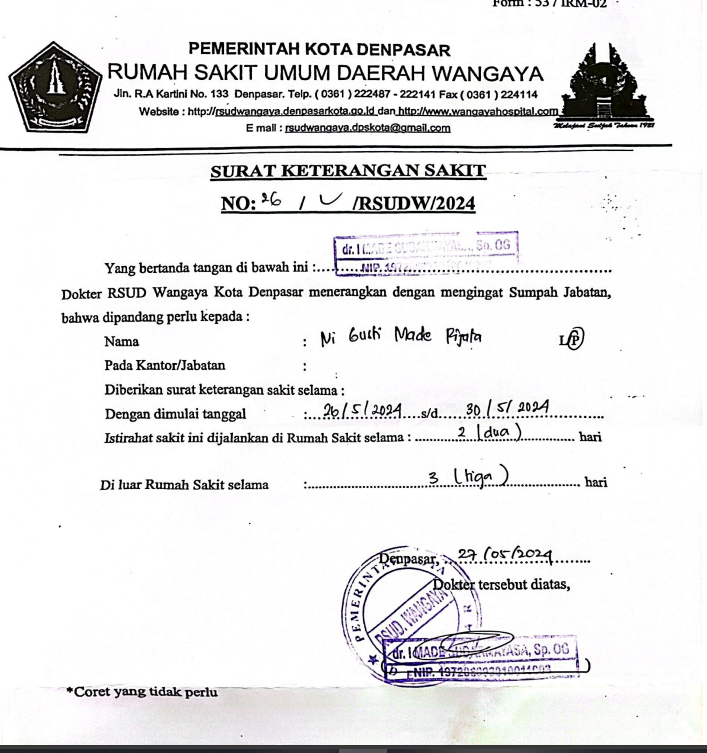 Form : 53 / IRM-02
PEMERINTAH KOTA DENPASAR
RUMAH SAKIT UMUM DAERAH WANGAYA
Jln. R.A Kartini No. 133 Denpasar. Telp. ( 0361 ) 222487 - 222141 Fax ( 0361 ) 224114
Website : http://rsudwangaya.denpasarkota.go.id dan http://www.wangayahospital.com
E mail : rsudwangaya.dpskota@gmail.com
SURAT KETERANGAN SAKIT
NO: 26 / V /RSUDW/2024
dr. I MADE Sp. OG
NIP.
Yang bertanda tangan di bawah ini :
Dokter RSUD Wangaya Kota Denpasar menerangkan dengan mengingat Sumpah Jabatan,
bahwa dipandang perlu kepada :
Nama : Ni Gusti Made L/P
Pada Kantor/Jabatan :
Diberikan surat keterangan sakit selama :
Dengan dimulai tanggal : 26/5/2024 s/d 30/5/2024
Istirahat sakit ini dijalankan di Rumah Sakit selama : 2 (dua) hari
Di luar Rumah Sakit selama : 3 (tiga) hari
Denpasar, 27/05/2024
Dokter tersebut diatas,
PEMERINTA
RSUD. WANGAYA
dr. I MADE Sp. OG
NIP.
*Coret yang tidak perlu